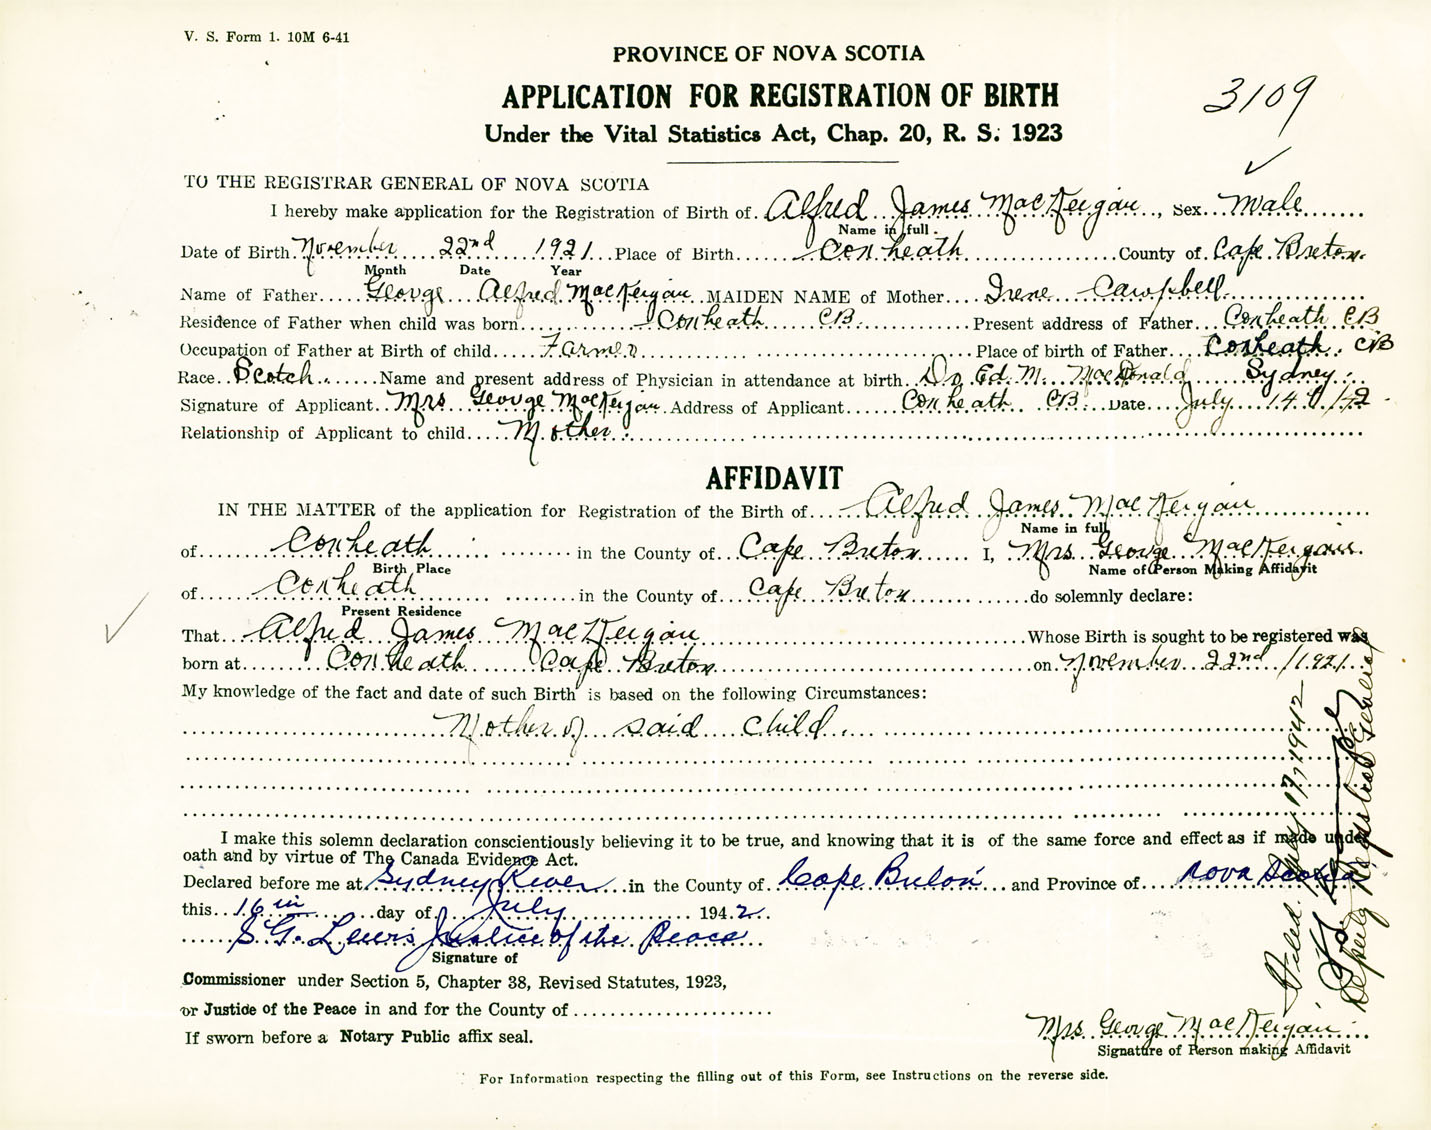 V. S. Form 1. 10M 6-41
PROVINCE OF NOVA SCOTIA
APPLICATION FOR REGISTRATION OF BIRTH
3109
Under the Vital Statistics Act, Chap. 20, R. S. 1923
TO THE REGISTRAR GENERAL OF NOVA SCOTIA
I hereby make application for the Registration of Birth of Alfred James MacKeigan, Sex Male
Name in full
Date of Birth November 22nd 1921 Place of Birth Coxheath County of Cape Breton
Month Date Year
Name of Father George Alfred MacKeigan MAIDEN NAME of Mother Irene Campbell
Residence of Father when child was born Coxheath CB Present address of Father Coxheath CB
Occupation of Father at Birth of child Farmer Place of birth of Father Coxheath CB
Race Scotch Name and present address of Physician in attendance at birth Dr Ed. M. MacDonald Sydney
Signature of Applicant Mrs George MacKeigan Address of Applicant Coxheath CB Date July 14/42
Relationship of Applicant to child Mother
AFFIDAVIT
IN THE MATTER of the application for Registration of the Birth of Alfred James MacKeigan
Name in full
of Coxheath in the County of Cape Breton I, Mrs George MacKeigan
Birth Place Name of Person Making Affidavit
of Coxheath in the County of Cape Breton do solemnly declare:
Present Residence
That Alfred James MacKeigan Whose Birth is sought to be registered was
born at Coxheath Cape Breton on November 22nd 1921
My knowledge of the fact and date of such Birth is based on the following Circumstances:
Mother of said child
I make this solemn declaration conscientiously believing it to be true, and knowing that it is of the same force and effect as if made under
oath and by virtue of The Canada Evidence Act.
Declared before me at Sydney River in the County of Cape Breton and Province of Nova Scotia
this 16th day of July 1942
S G. Lewis Justice of the Peace
Signature of
Commissioner under Section 5, Chapter 38, Revised Statutes, 1923,
or Justice of the Peace in and for the County of
If sworn before a Notary Public affix seal.
Mrs George MacKeigan
Signature of Person making Affidavit
For Information respecting the filling out of this Form, see Instructions on the reverse side.
Filed July 17, 1942
Deputy Registrar General